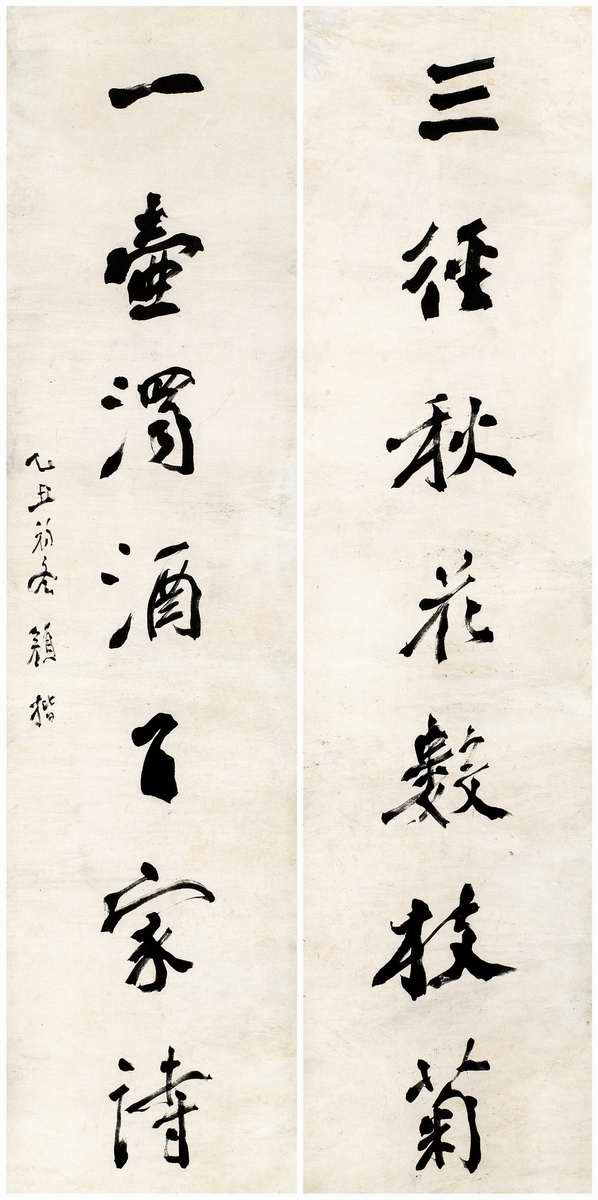 三徑秋花數枝菊
一壺濁酒百家詩
乙丑初冬 顏楷